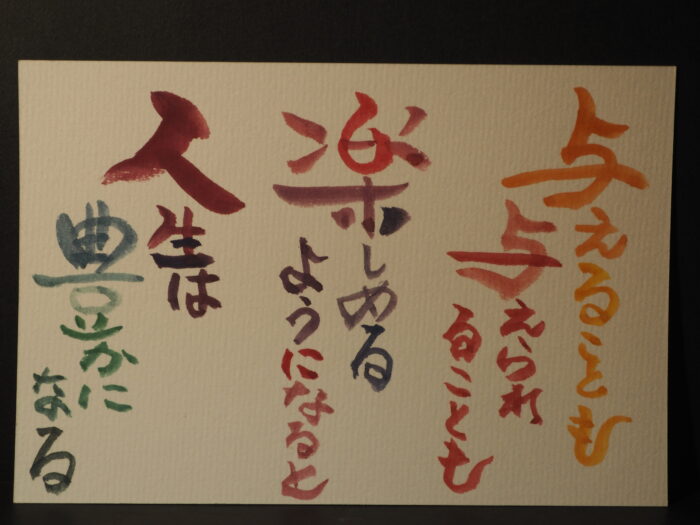 与えることも
与えられ
ることも
楽しめる
ようになると
人生は
豊かに
なる